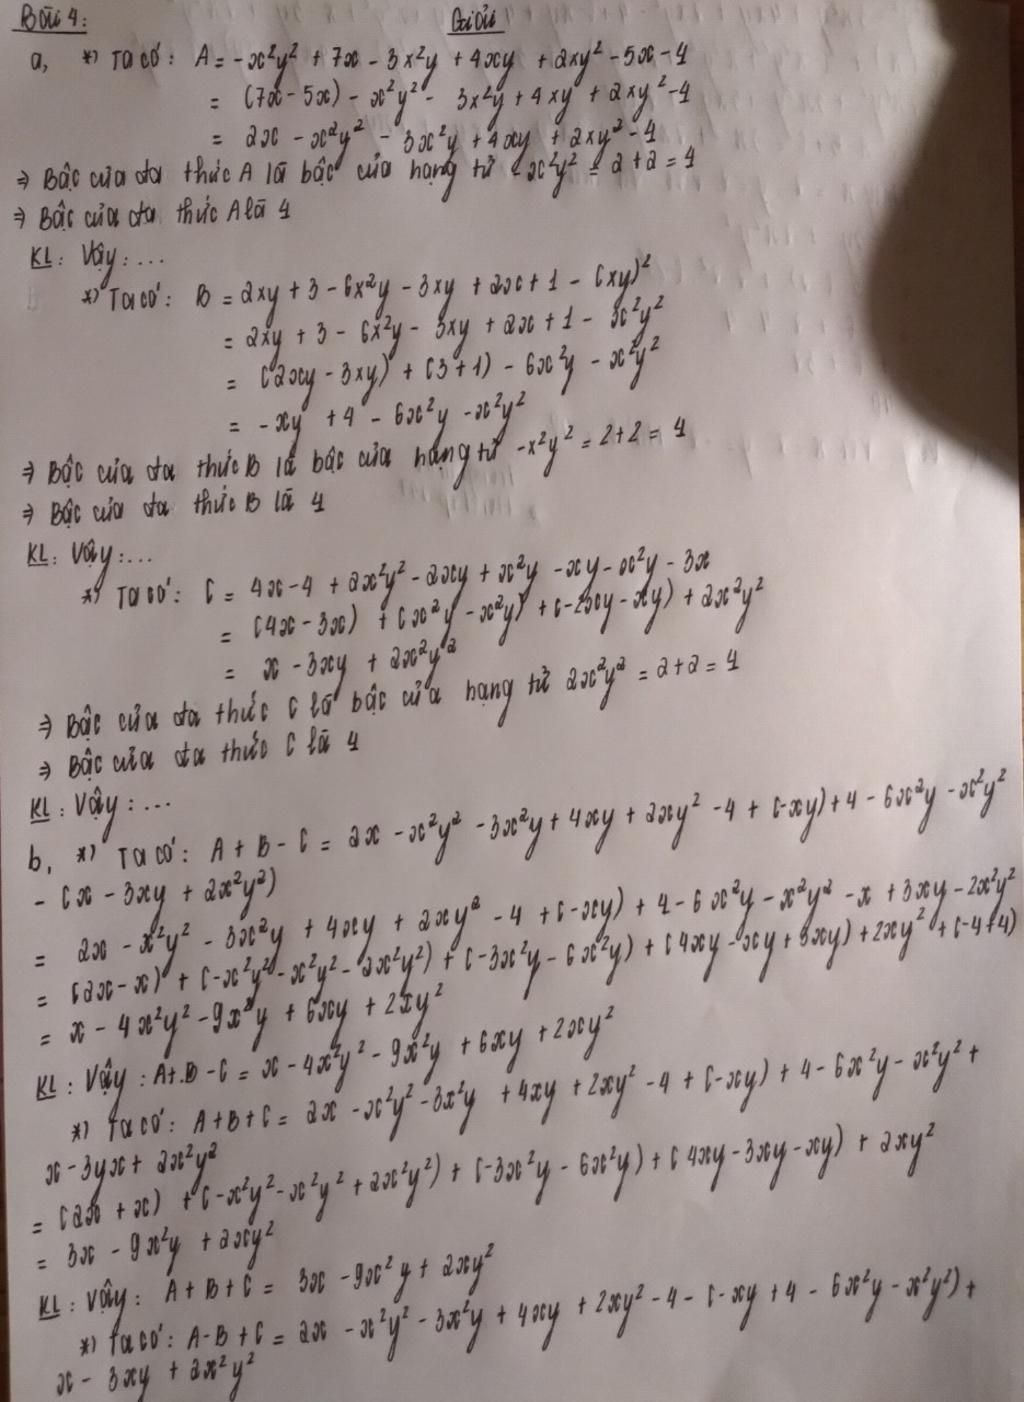 Bài 4:
Giải
a, *) Ta có: A = -x²y² + 7x - 3x²y + 4xy + 2xy² - 5x - 4
= (7x - 5x) - x²y² - 3x²y + 4xy + 2xy² - 4
= 2x - x²y² - 3x²y + 4xy + 2xy² - 4
⇒ Bậc của đa thức A là bậc của hạng tử -x²y² = 2 + 2 = 4
⇒ Bậc của đa thức A là 4
KL: Vậy: ...
*) Ta có: B = 2xy + 3 - 6x²y - 3xy + 2x + 1 - (xy)²
= 2xy + 3 - 6x²y - 3xy + 2x + 1 - x²y²
= (2xy - 3xy) + (3 + 1) - 6x²y - x²y²
= -xy + 4 - 6x²y - x²y²
⇒ Bậc của đa thức B là bậc của hạng tử -x²y² = 2 + 2 = 4
⇒ Bậc của đa thức B là 4
KL: Vậy: ...
*) Ta có: C = 4x - 4 + 2x²y² - 2xy + x²y - xy - x²y - 3x
= (4x - 3x) + (x²y - x²y) + (-2xy - xy) + 2x²y²
= x - 3xy + 2x²y²
⇒ Bậc của đa thức C là bậc của hạng tử 2x²y² = 2 + 2 = 4
⇒ Bậc của đa thức C là 4
KL: Vậy: ...
b, *) Ta có: A + B - C = 2x - x²y² - 3x²y + 4xy + 2xy² - 4 + (-xy) + 4 - 6x²y - x²y²
- (x - 3xy + 2x²y²)
= 2x - x²y² - 3x²y + 4xy + 2xy² - 4 + (-xy) + 4 - 6x²y - x²y² - x + 3xy - 2x²y²
= (2x - x) + (-x²y² - x²y² - 2x²y²) + (-3x²y - 6x²y) + (4xy - xy + 3xy) + 2xy² + (-4 + 4)
= x - 4x²y² - 9x²y + 6xy + 2xy²
KL: Vậy: A + B - C = x - 4x²y² - 9x²y + 6xy + 2xy²
*) Ta có: A + B + C = 2x - x²y² - 3x²y + 4xy + 2xy² - 4 + (-xy) + 4 - 6x²y - x²y² +
x - 3yx + 2x²y²
= (2x + x) + (-x²y² - x²y² + 2x²y²) + (-3x²y - 6x²y) + (4xy - 3xy - xy) + 2xy²
= 3x - 9x²y + 2xy²
KL: Vậy: A + B + C = 3x - 9x²y + 2xy²
*) Ta có: A - B + C = 2x - x²y² - 3x²y + 4xy + 2xy² - 4 - (-xy + 4 - 6x²y - x²y²) +
x - 3xy + 2x²y²